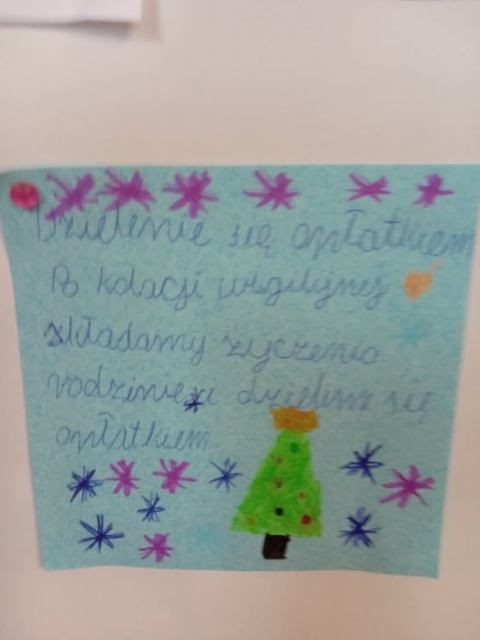 Dzielenie się opłatkiem
Po kolacji wigilijnej
składamy życzenia
rodzinie i dzielimy się
opłatkiem.